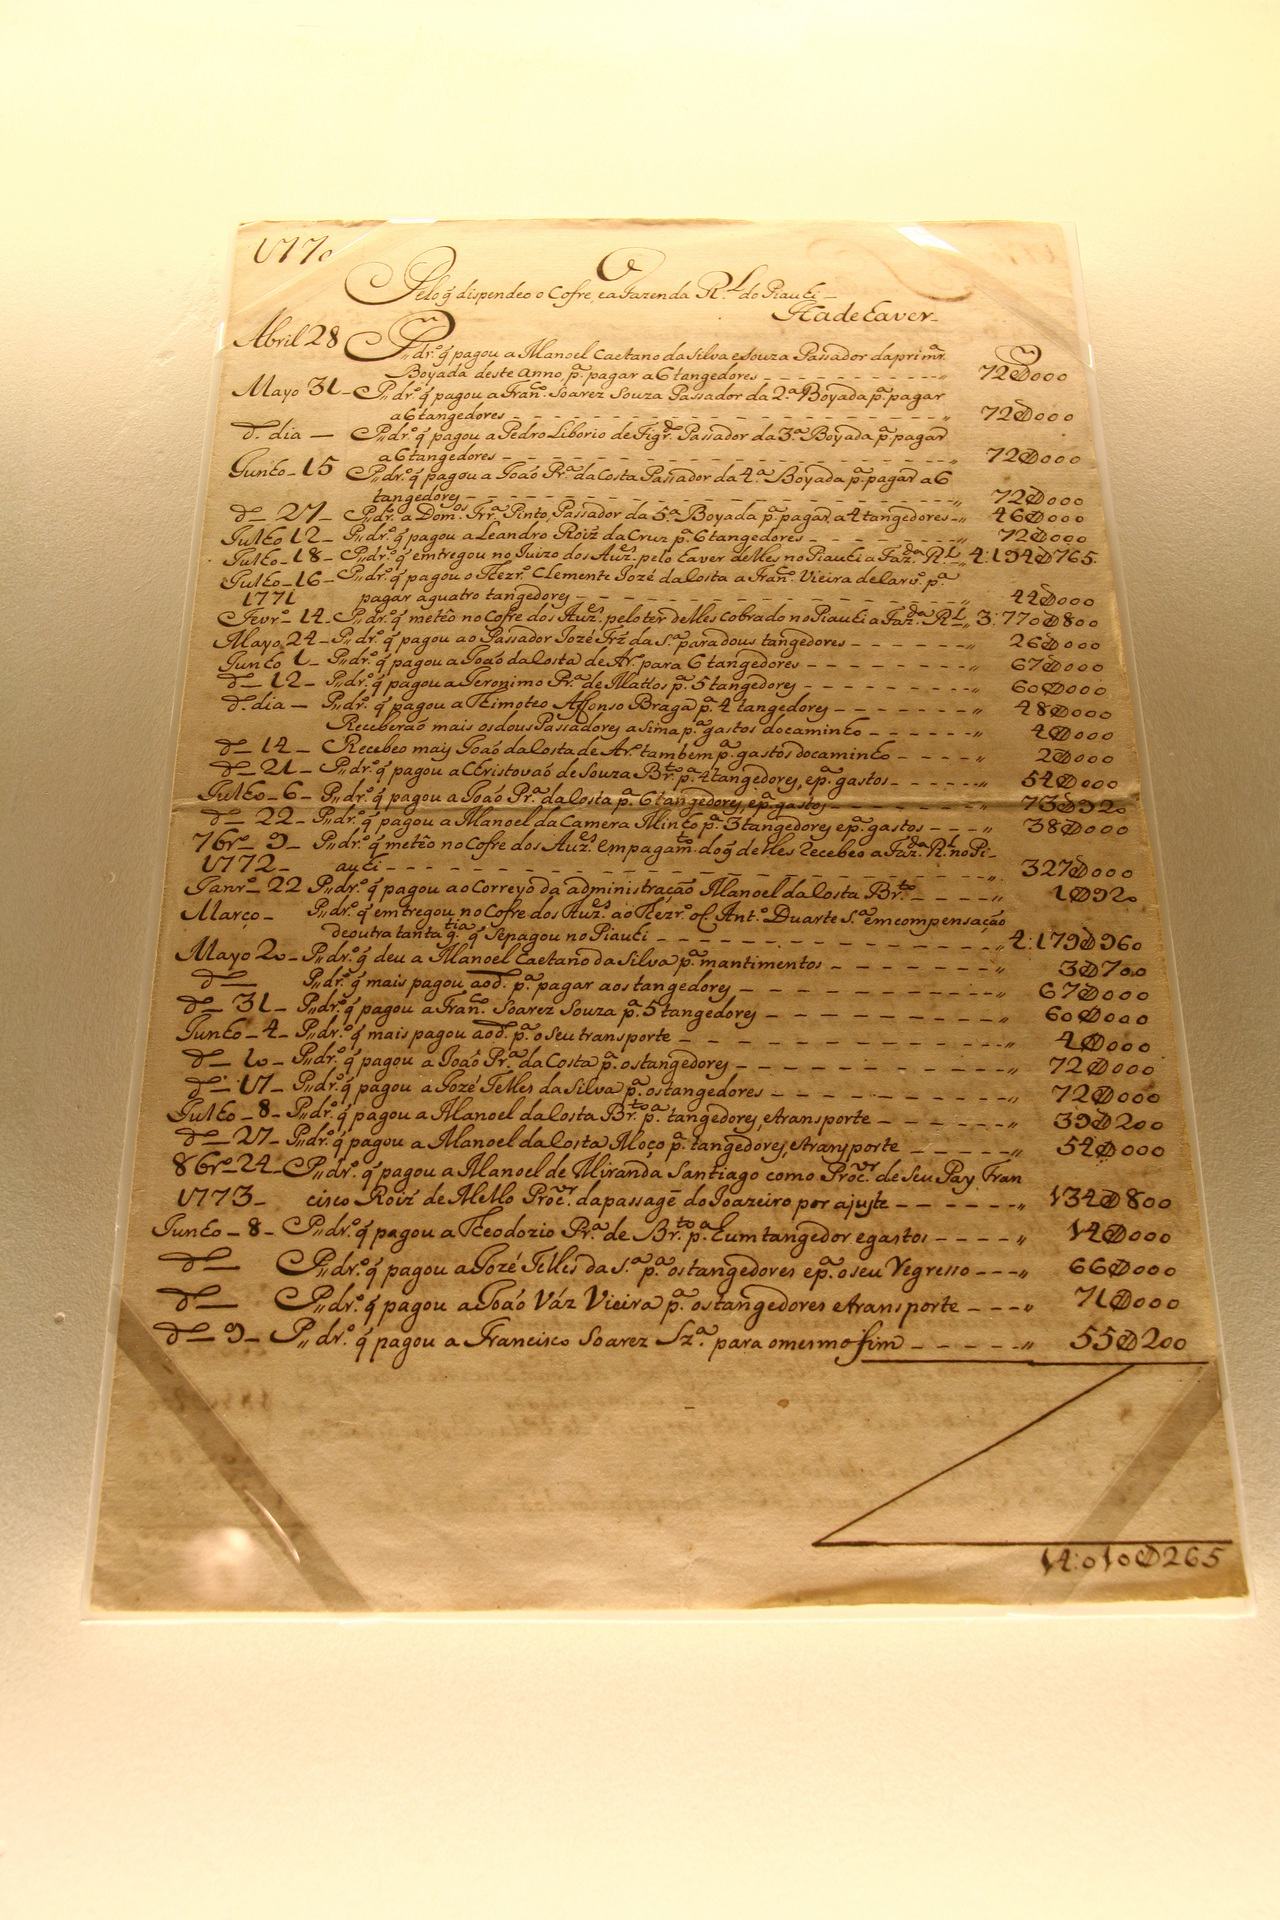 1770
Pelo q̃ dispendeo o Cofre, ea Fazenda R.l do Piauhi
Hade haver
Abril 28 P.,, dr.o q̃ pagou a Manoel Caetano da Silva e Souza Passador da prim.ra
Boyada deste anno p.a pagar a 6 tangedores 72$000
Mayo 31 P.,, dr.o q̃ pagou a Fran.co Soarez Souza Passador da 2.a Boyada p.a pagar
a 6 tangedores 72$000
d.o dia P.,, dr.o q̃ pagou a Pedro Liborio de Figr.do Passador da 3.a Boyada p.a pagar
a 6 tangedores 72$000
Junho 15 P.,, dr.o q̃ pagou a João Pr.a da Costa Passador da 4.a Boyada p.a pagar a 6
tangedores 72$000
d.o 27 P.,, dr.o a Dom.os Frr.a Pinto, Passador da 5.a Boyada p.a pagar a 4 tangedores 46$000
Julho 12 P.,, dr.o q̃ pagou a Leandro Roiz da Cruz p.a 6 tangedores 72$000
Julho 18 P.,, dr.o q̃ emtregou no Juizo dos Auz.es pelo haver delles no Piauhi a Faz.da R.l 4:194$765
Julho 16 P.,, dr.o q̃ pagou o Thezr.o Clemente Jozé da Costa a Fran.co Vieira de Carv.o p.a
1771 pagar aquatro tangedores 44$000
Fevr.o 14 P.,, dr.o q̃ metêo no Cofre dos Auz.es pelo ter delles cobrado no Piauhi a Faz.da R.l 3:770$800
Mayo 24 P.,, dr.o q̃ pagou ao Passador Jozé Frz da S.a para dous tangedores 26$000
Junho 1 P.,, dr.o q̃ pagou a João da Costa de Ar.o para 6 tangedores 67$000
d.o 12 P.,, dr.o q̃ pagou a Jeronimo Pr.a de Mattos p.a 5 tangedores 60$000
d.o dia P.,, dr.o q̃ pagou a Thimoteo Affonso Braga p.a 4 tangedores 48$000
Receberaõ mais os dous Passadores asima p.a gastos do caminho 4$000
d.o 14 Recebeo mais João da Costa de Ar.o tambem p.a gastos do caminho 2$000
d.o 21 P.,, dr.o q̃ pagou a Christovaõ de Souza Br.to p.a 4 tangedores, e p.a gastos 54$000
Julho 6 P.,, dr.o q̃ pagou a João Pr.a da Costa p.a 6 tangedores, e p.a gastos 73$920
d.o 22 P.,, dr.o q̃ pagou a Manoel da Camera Minho p.a 3 tangedores e p.a gastos 38$000
7br.o 9 P.,, dr.o q̃ metêo no Cofre dos Auz.es em pagam.to do q̃ delles recebeo a Faz.da R.l no Pi-
1772 auhi 327$000
Janr.o 22 P.,, dr.o q̃ pagou ao Correyo da administração Manoel da Costa Br.to 1$920
Março P.,, dr.o q̃ emtregou no Cofre dos Auz.es ao Thezr.o C.l Ant.o Duarte S.a em compensação
de outra tanta q.tia q̃ se pagou no Piauhi 4:179$960
Mayo 20 P.,, dr.o q̃ deu a Manoel Caetano da Silva p.a mantimentos 3$700
d.o P.,, dr.o q̃ mais pagou ao d.o p.a pagar aos tangedores 67$000
d.o 31 P.,, dr.o q̃ pagou a Fran.co Soarez Souza p.a 5 tangedores 60$000
Junho 4 P.,, dr.o q̃ mais pagou ao d.o p.a o seu transporte 4$000
d.o 10 P.,, dr.o q̃ pagou a João Pr.a da Costa p.a os tangedores 72$000
d.o 17 P.,, dr.o q̃ pagou a Jozé Telles da Silva p.a os tangedores 72$000
Julho 8 P.,, dr.o q̃ pagou a Manoel da Costa Br.to p.a tangedores, e transporte 39$200
d.o 27 P.,, dr.o q̃ pagou a Manoel da Costa Moço p.a tangedores, e transporte 54$000
8br.o 24 P.,, dr.o q̃ pagou a Manoel de Miranda Santiago como Proc.or de seu Pay Fran
1773 cisco Roiz de Mello Proc.or da passagẽ do Joazeiro por ajuste 134$800
Junho 8 P.,, dr.o q̃ pagou a Theodozio Pr.a de Br.to p.a hum tangedor e gastos 14$000
d.o P.,, dr.o q̃ pagou a Jozé Telles da S.a p.a os tangedores e p.a o seu regresso 66$000
d.o P.,, dr.o q̃ pagou a João Váz Vieira p.a os tangedores e transporte 71$000
d.o 9 P.,, dr.o q̃ pagou a Francisco Soarez Sz.a para o mesmo fim 55$200
14:010$265